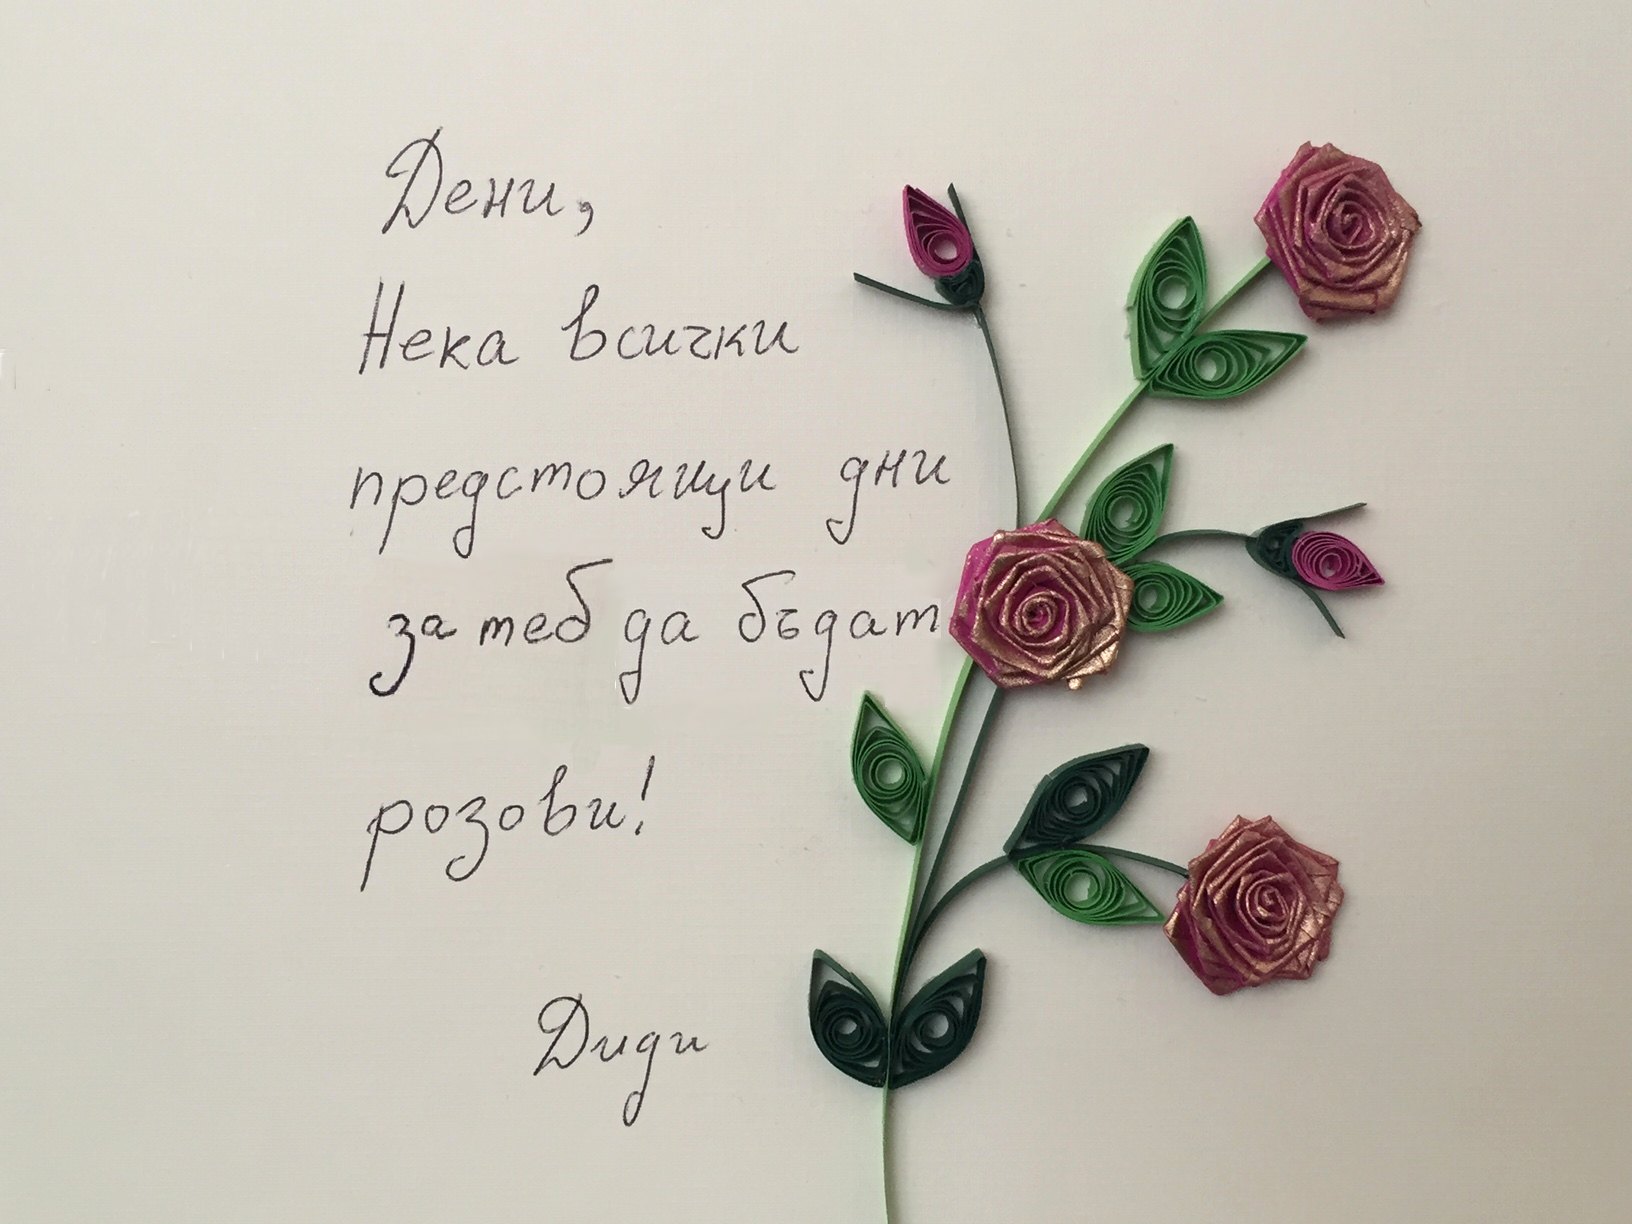 Дени,
Нека всички
предстоящи дни
за теб да бъдат
розови!
Диди